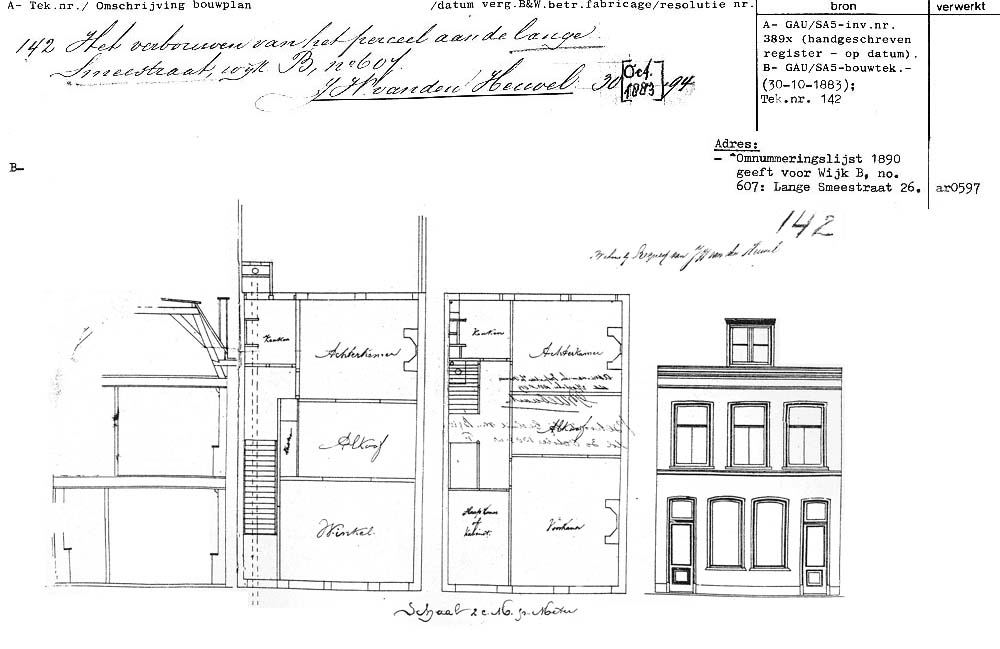 A- Tek.nr./ Omschrijving bouwplan
/datum verg.B&W.betr.fabricage/resolutie nr.
bron
verwerkt
142 Het verbouwen van het perceel aan de lange
Smeestraat, wijk B, no 607.
J H van den Heuvel. 30 [Oct. 1883] 94
A- GAU/SA5-inv.nr.
389x (handgeschreven
register - op datum).
B- GAU/SA5-bouwtek.-
(30-10-1883);
Tek.nr. 142
Adres:
- Omnummeringslijst 1890
geeft voor Wijk B, no.
607: Lange Smeestraat 26.
ar0597
B-
142
J H van den Heuvel
Keuken
Achterkamer
Alkoof
Winkel
Keuken
Achterkamer
Alkoof
Voorkamer
Schaal 2 c.M. p. Meter